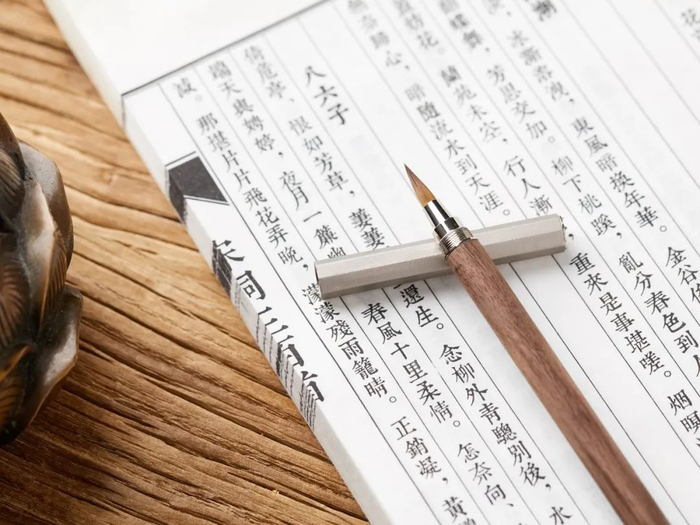 潮
冰澌溶洩，東風暗換年華。金
舞，芳思交加。柳下桃蹊，亂分春色到人
礙花。蘭苑未空，行人漸重來是事堪嗟。烟暝
無奈歸心，暗隨流水到天涯。
八六子
倚危亭，恨如芳草，萋萋還生。念柳外青驄別後，水
端天與娉婷，夜月一簾幽春風十里柔情。怎奈向、
減。那堪片片飛花弄晚，濛濛殘雨籠晴。正銷凝，黃
宋詞三百首